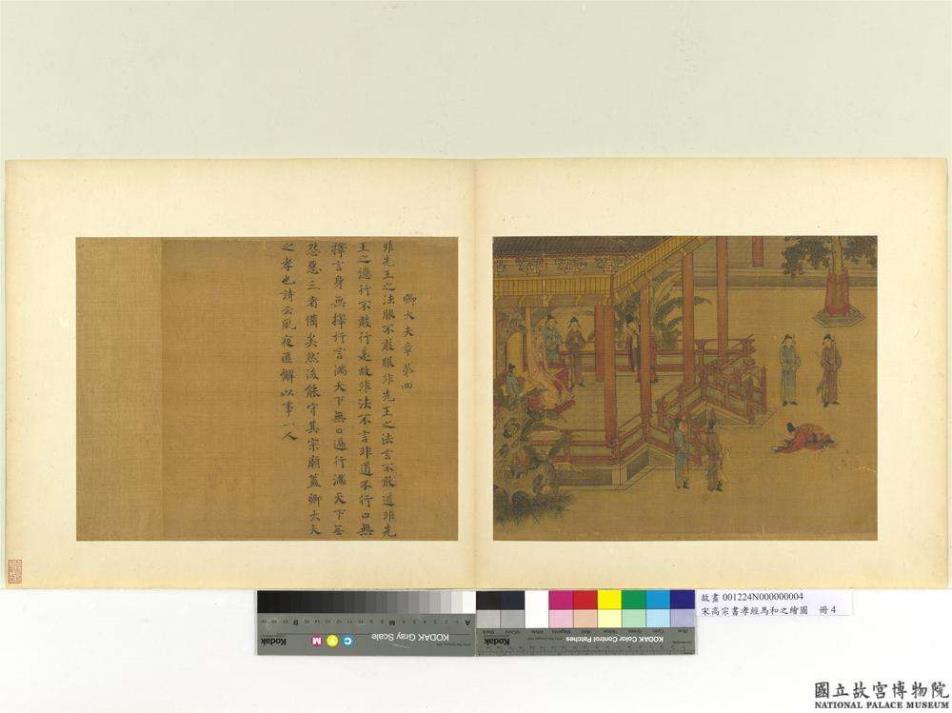 卿大夫章第四
非先王之法服不敢服非先王之法言不敢道非先
王之德行不敢行是故非法不言非道不行口無
擇言身無擇行言滿天下無口過行滿天下無
怨惡三者備矣然後能守其宗廟蓋卿大夫
之孝也詩云夙夜匪懈以事一人
Kodak
C Y M
KODAK Gray Scale
A
M
B
KODAK Color Control Patches
Kodak
故畫 001224N000000004
宋高宗書孝經馬和之繪圖 冊 4
國立故宮博物院
NATIONAL PALACE MUSEUM